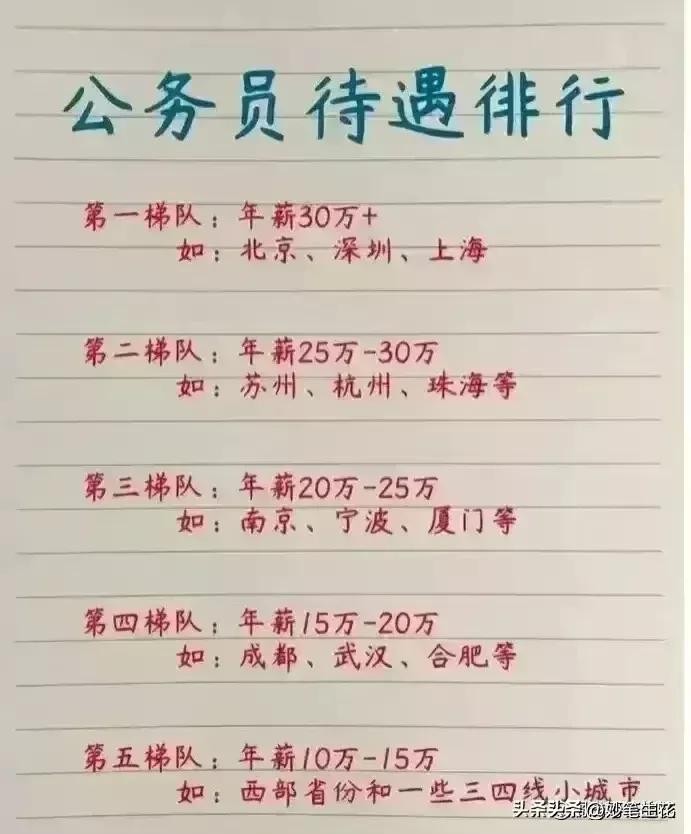 公务员待遇徘行
第一梯队：年薪30万+
如：北京、深圳、上海
第二梯队：年薪25万-30万
如：苏州、杭州、珠海等
第三梯队：年薪20万-25万
如：南京、宁波、厦门等
第四梯队：年薪15万-20万
如：成都、武汉、合肥等
第五梯队：年薪10万-15万
如：西部省份和一些三四线小城市
头条 @妙笔生花